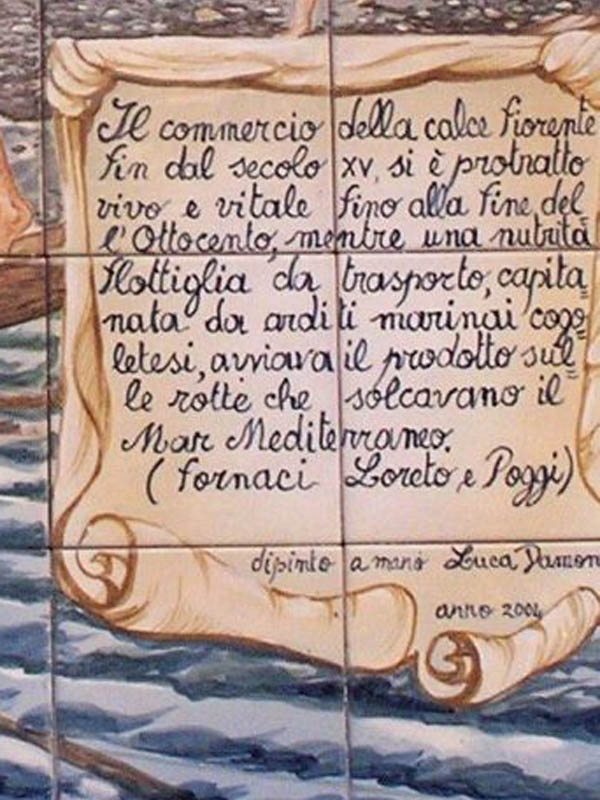 Il commercio della calce fiorente
fin dal secolo XV, si è protratto
vivo e vitale fino alla fine del
l'Ottocento, mentre una nutrita
flottiglia da trasporto, capita=
nata da arditi marinai cogo=
letesi, avviava il prodotto sul=
le rotte che solcavano il
Mar Mediterraneo.
(fornaci Loreto e Poggi)
dipinto a mano Luca Damon
anno 2004